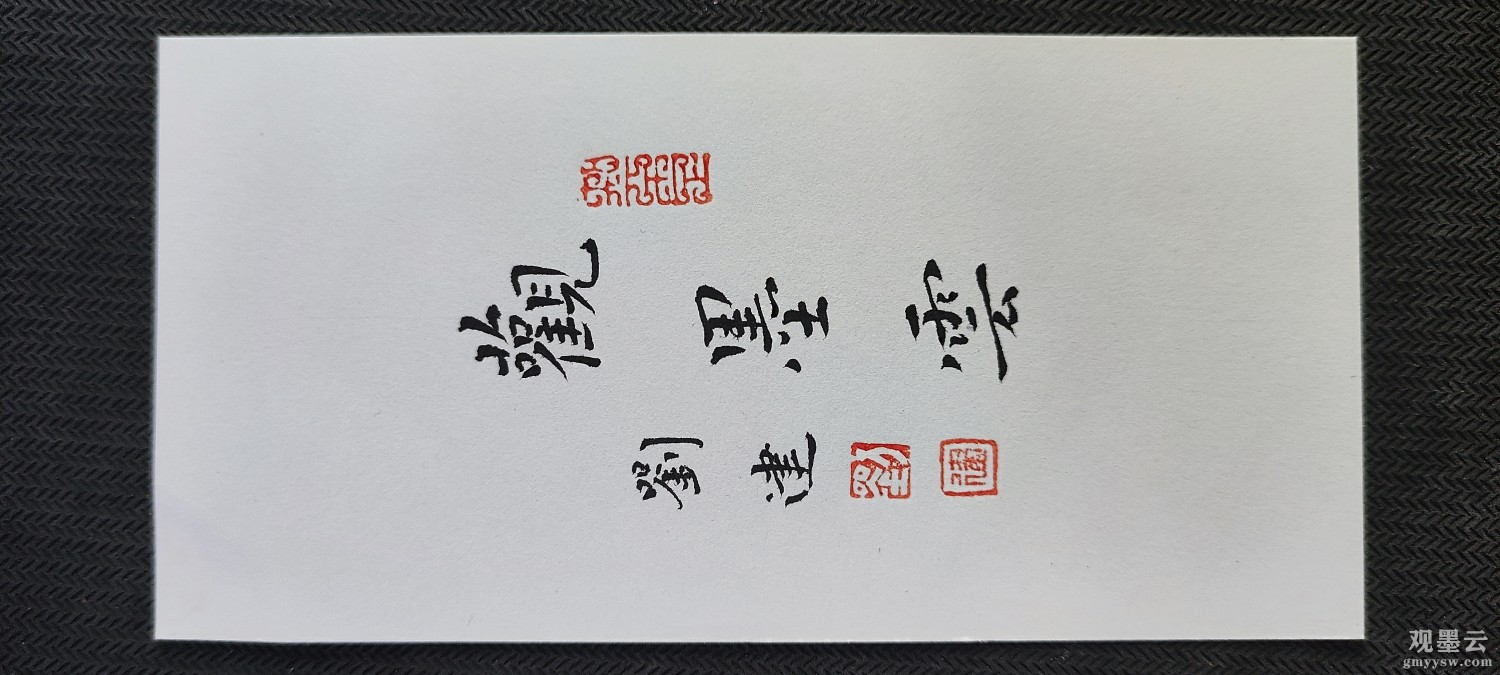 觀墨雲
劉建
观墨云
gmyysw.com